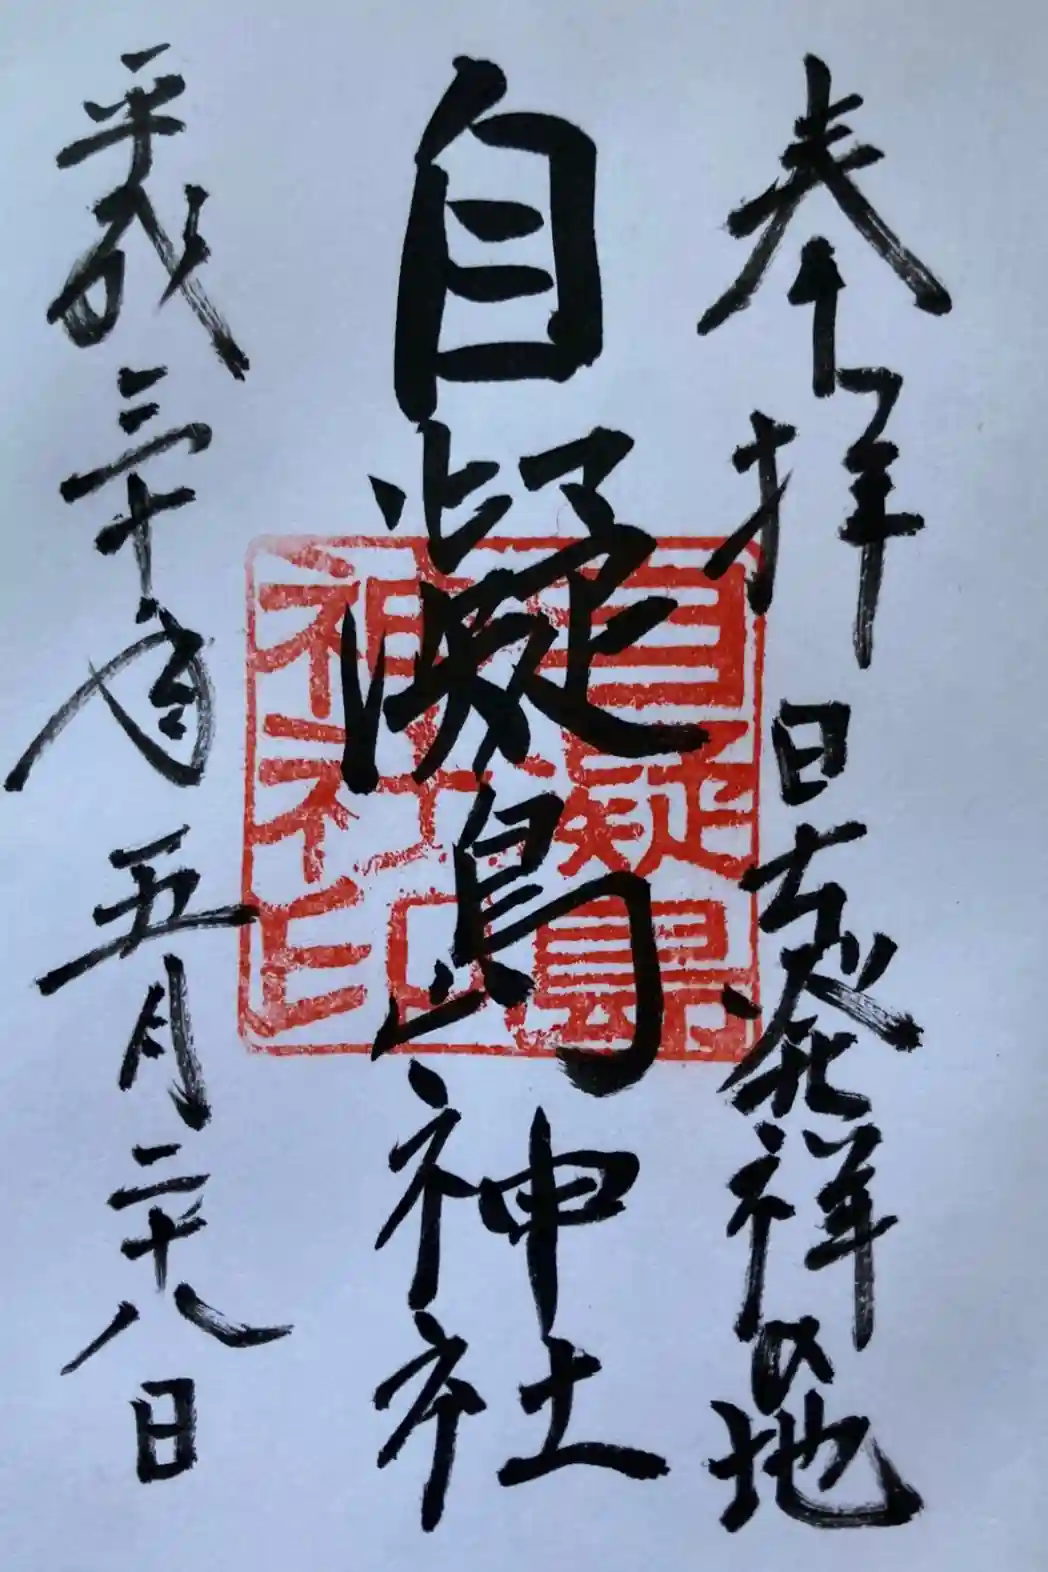 奉拝 日本発祥の地
自凝島神社
平成三十年 五月二十八日
自凝島
神社印